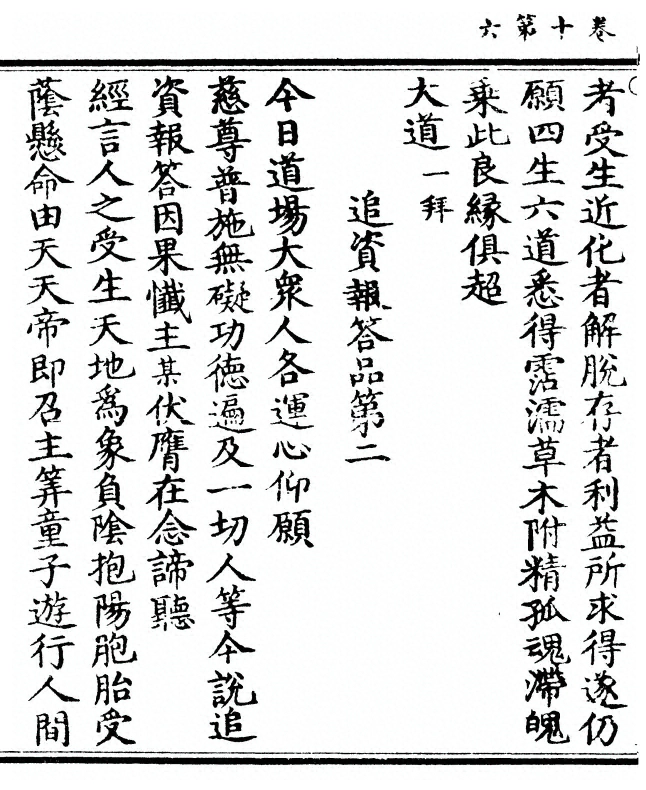 卷十第六
考受生近化者解脫存者利益所求得遂仍
願四生六道悉得霑濡草木附精孤魂滯魄
乘此良緣俱超
大道一拜
追資報答品第二
今日道場大衆人各運心仰願
慈尊普施無礙功德遍及一切人等今說追
資報答因果懺主某伏膺在念諦聽
經言人之受生天地爲象負陰抱陽胞胎受
蔭懸命由天天帝卽召主筭童子遊行人間